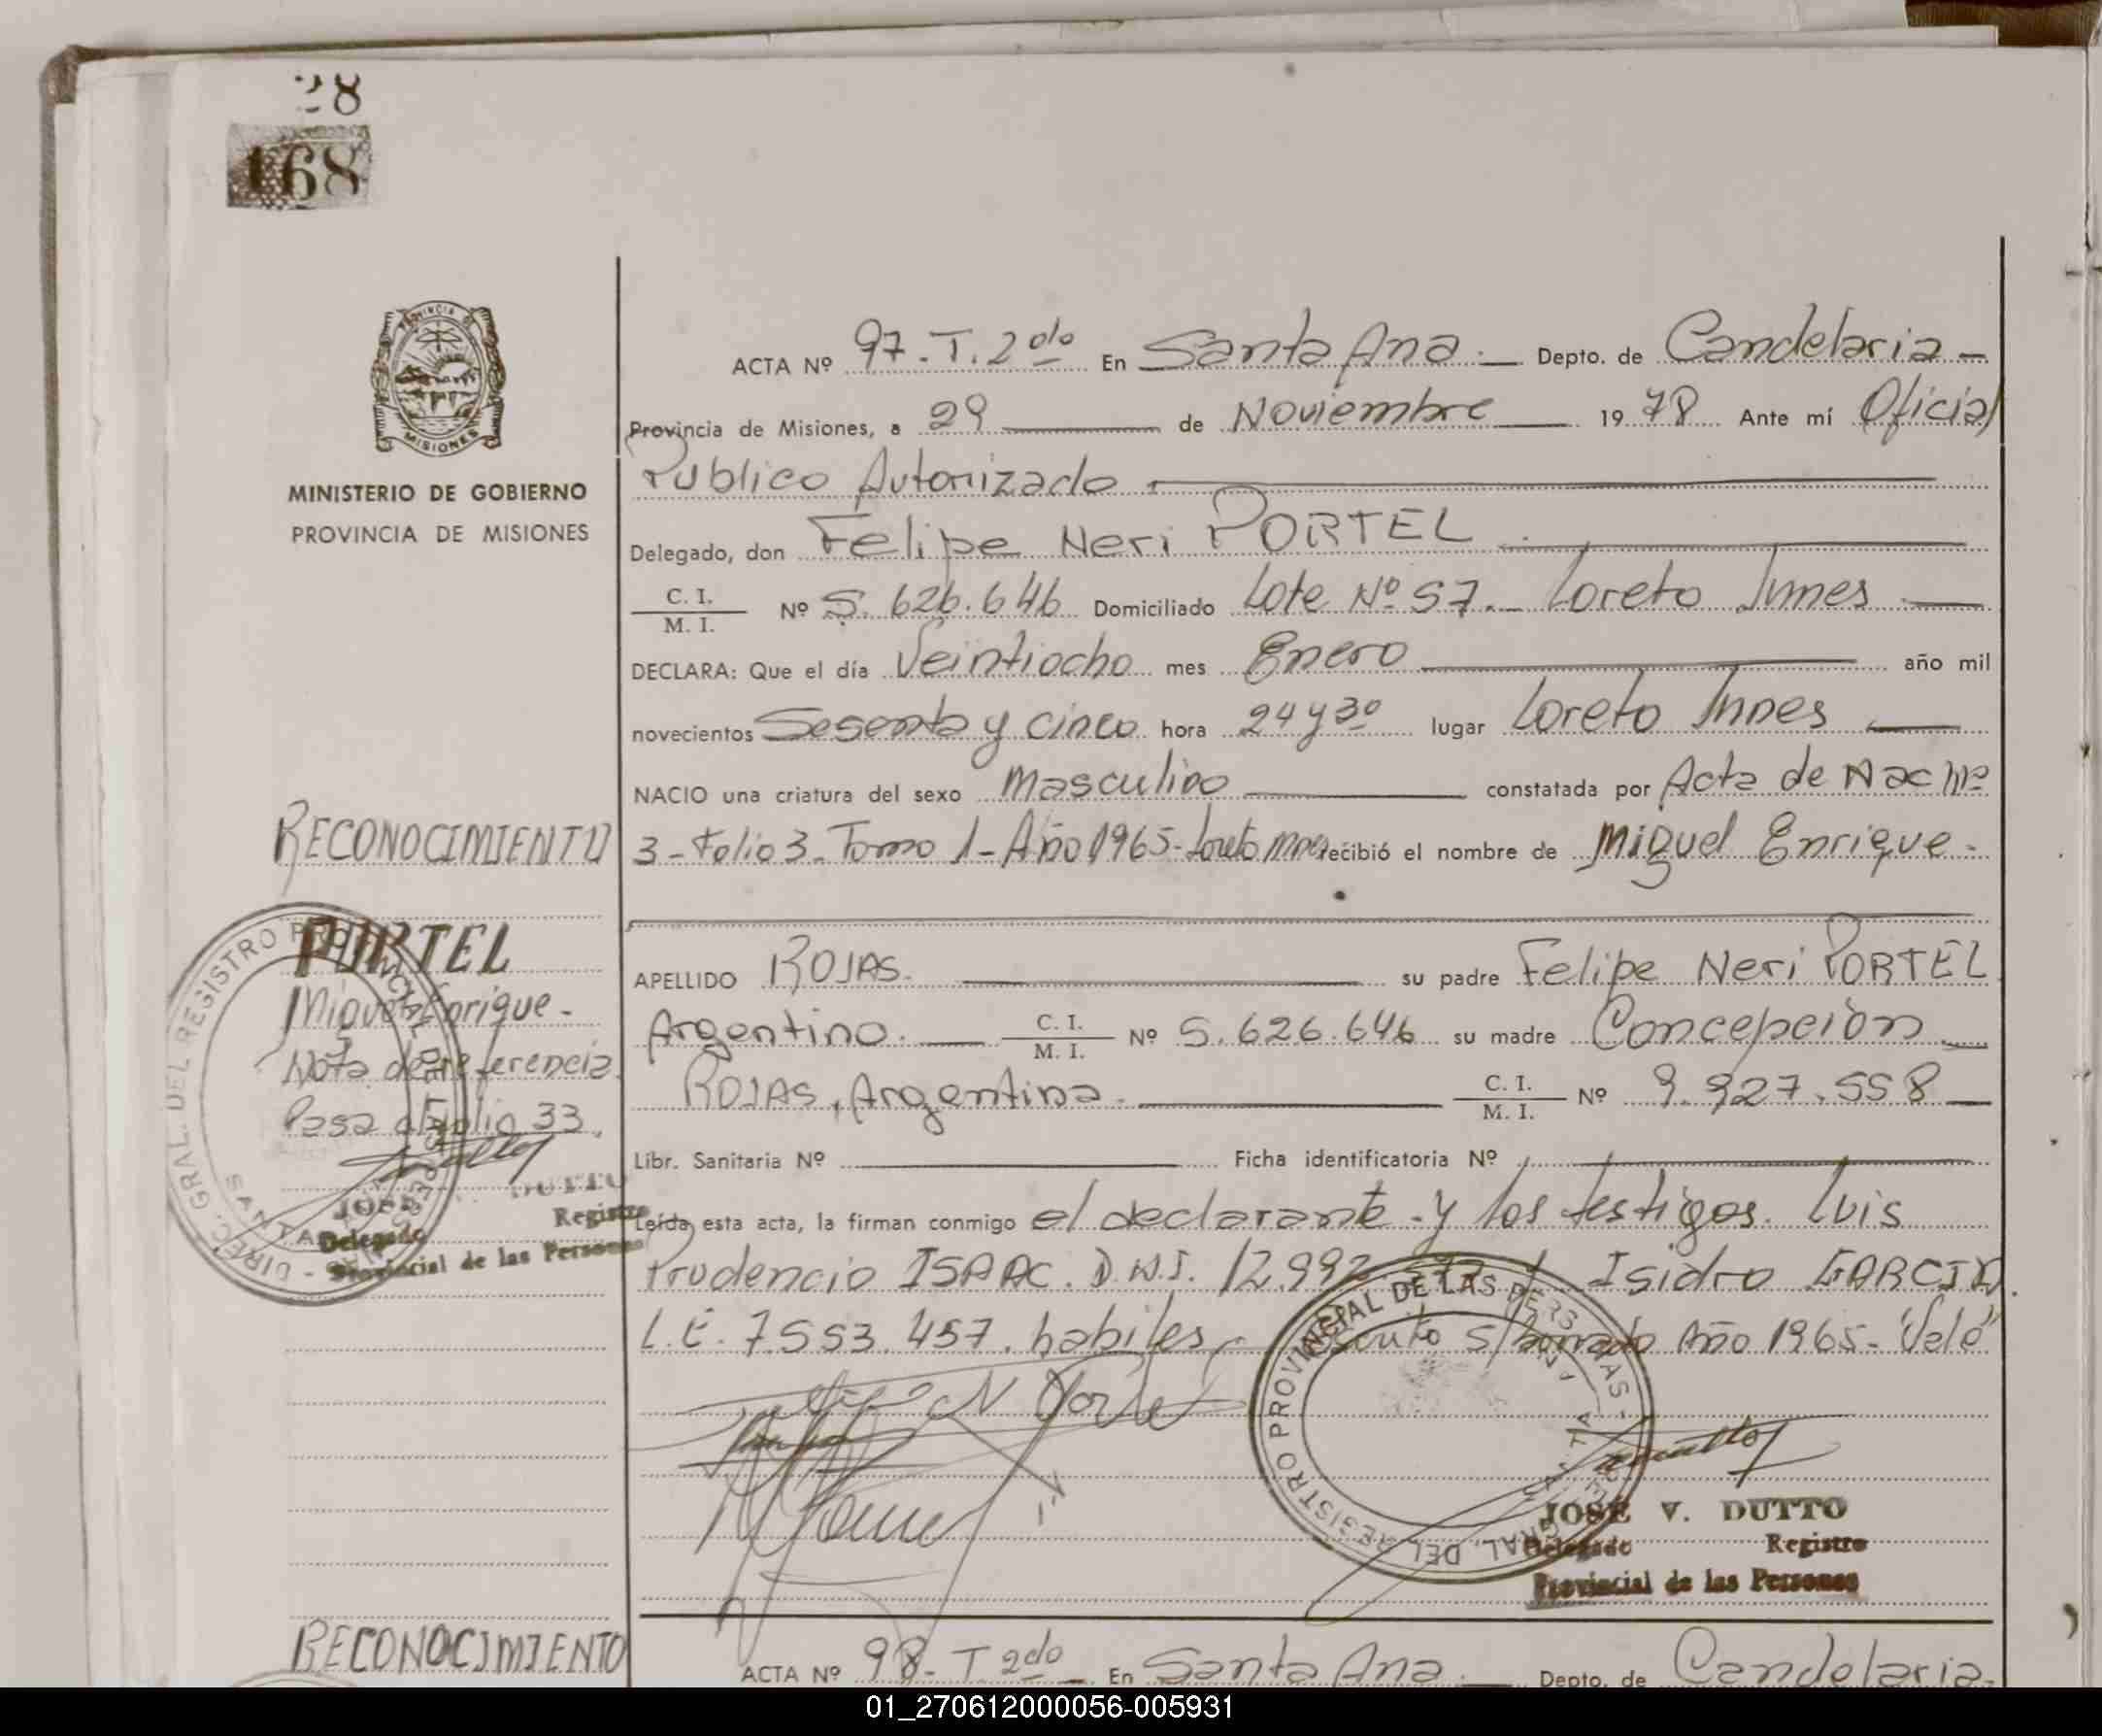 28
168
PROVINCIA DE
MISIONES
MINISTERIO DE GOBIERNO
PROVINCIA DE MISIONES
RECONOCIMIENTO
PORTEL
Miguel Enrique -
Nota de referencia
Pasa al folio 33.
DUTTO
Registro
Delegado
Provincial de las Personas
DIREC. GRAL. DEL REGISTRO PROVINCIAL DE LAS PERSONAS - SANTA ANA
ACTA Nº 97-T.2do En Santa Ana.- Depto. de Candelaria -
Provincia de Misiones, a 29 de Noviembre 1978 Ante mí Oficial
Publico Autorizado.
Delegado, don Felipe Neri PORTEL
C. I. / M. I. Nº 5.626.646 Domiciliado Lote Nº 57. Loreto Mnes
DECLARA: Que el día Veintiocho mes Enero año mil
novecientos Sesenta y cinco hora 24 y 30 lugar Loreto Mnes
NACIO una criatura del sexo Masculino constatada por Acta de Nac Nº
3-Folio 3-Tomo 1-Año 1965-Loreto Mnes recibió el nombre de Miguel Enrique -
APELLIDO ROJAS. su padre Felipe Neri PORTEL
Argentino. C. I. / M. I. Nº 5.626.646 su madre Concepción
ROJAS, Argentina. C. I. / M. I. Nº 9.927.558
Libr. Sanitaria Nº Ficha identificatoria Nº
Leída esta acta, la firman conmigo el declarante y los testigos. Luis
Prudencio ISAAC. D.N.I. 12.992 Isidro GARCIA
L.E. 7.553.457. habiles. s/borrado Año 1965- "Vale"
DIREC. GRAL. DEL REGISTRO PROVINCIAL DE LAS PERSONAS - SANTA ANA
JOSE V. DUTTO
Delegado Registro
Provincial de las Personas
RECONOCIMIENTO
ACTA Nº 98-T 2do En Santa Ana. Depto. de Candelaria.
01_270612000056-005931